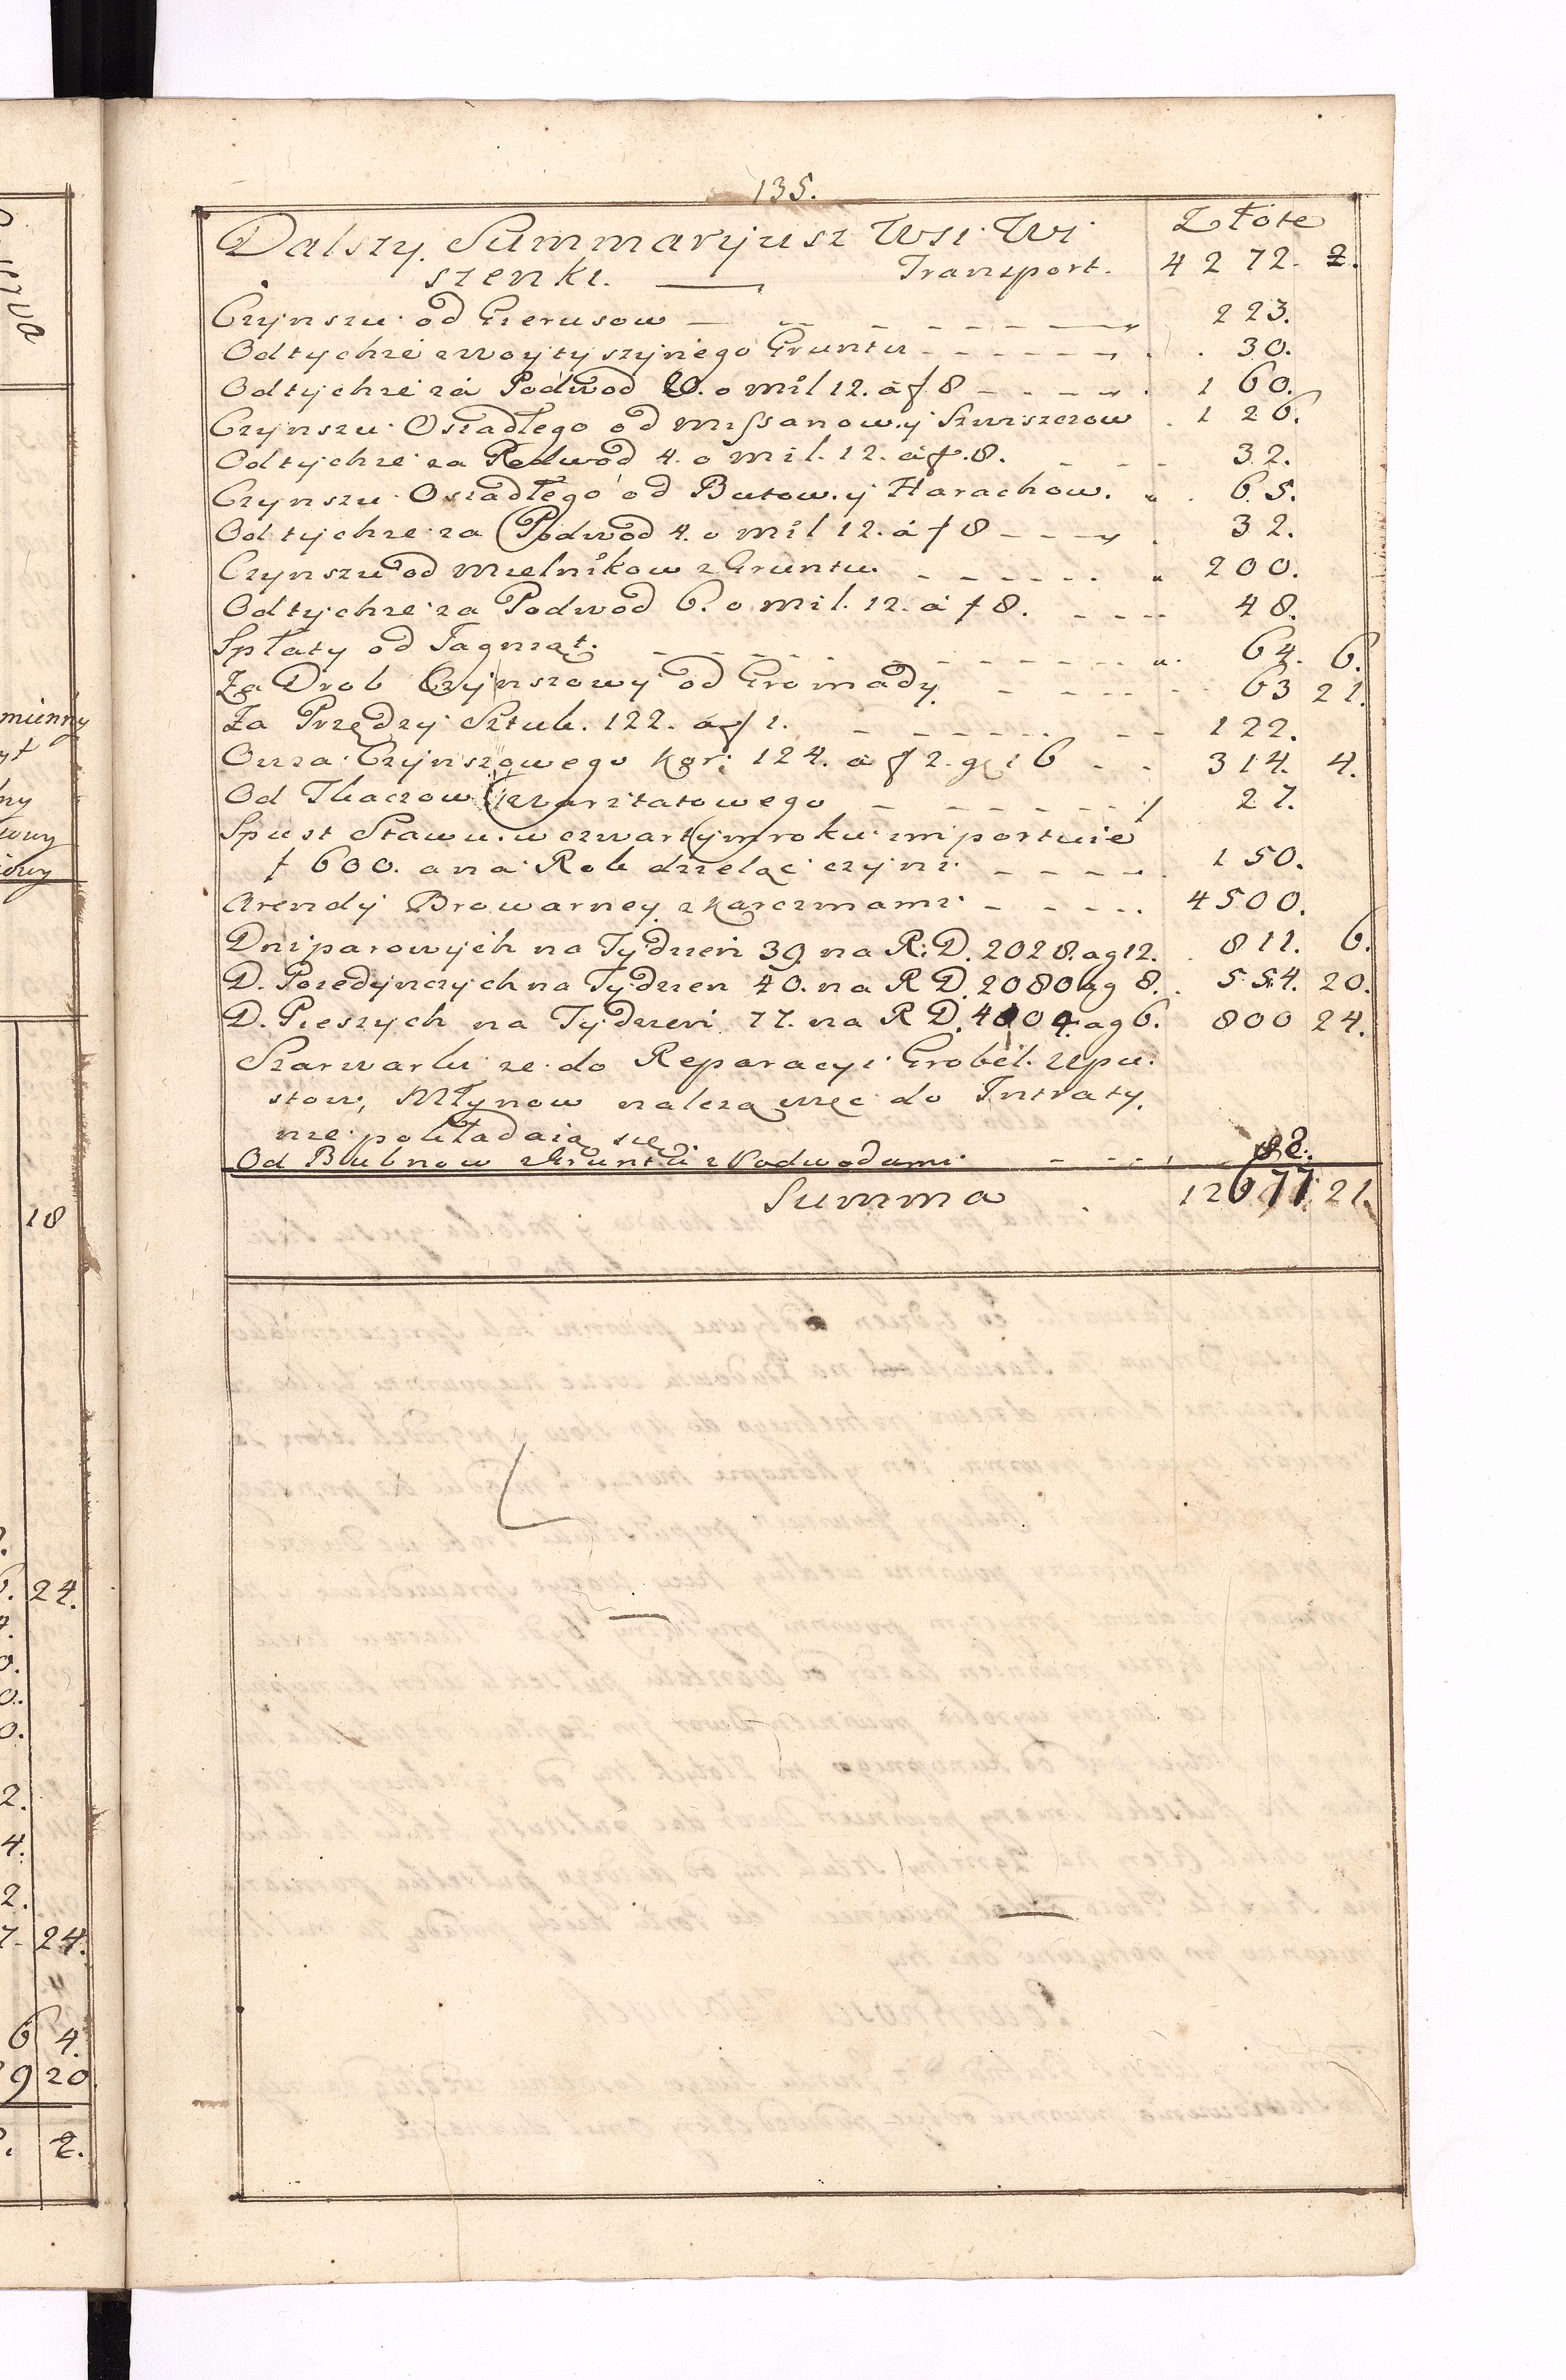 135.
Dalszy Summaryjusz Wsi Wi Złote
szenki. Transport. 4272. 2.
Czynszu od Gierusow 223.
Odtychże z woytyszynego Gruntu 30.
Odtychże za Podwod 20. o mil 12. á f 8 160.
Czynszu Osiadłego od Missanow. y Szwiszczow 126.
Odtychże za Podwod 4. o mil. 12. á f. 8. 32.
Czynszu Osiadłego od Butow. y Harachow. 65.
Odtychże za Podwod 4. o mil 12. á f 8 32.
Czynszu od Mielnikow z Gruntu 200.
Odtychże za Podwod 6. o mil. 12. á f 8. 48.
Spłaty od Jagniąt. 64. 6.
Za Drob Czynszowy od Gromady. 63 21.
Za Przędzy Sztuk. 122. á f 1. 122.
Owsa Czynszowego kor: 124. á f 2. g 16 314. 4.
Od Tkaczow Warsztatowego 27.
Spust Stawu w czwartym roku importuie
f 600. a na Rok dzieląc czyni 150.
Arendy Browarney z karczmami 4500.
Dni parowych na Tydzień 39. na R: D. 2028. a g 12. 811. 6.
D. Poiedynczych na Tydzien 40. na R D. 2080 a g 8. 554. 20.
D. Pieszych na Tydzień 77. na R D. 4004. a g 6. 800 24.
Szarwarki że do Reparacyi Grobel. Upu
stow, Młynow należą więc do Intraty
nie pokładaią się.
Od Bubnow z Gruntu z Podwodami 82.
Summa 12677 21.
mienny
ny
18
24.
2.
4.
2.
7. 24.
"
6 4.
9 20
2.